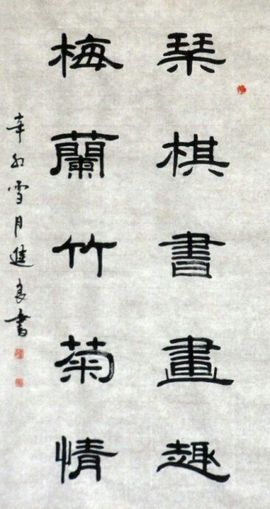 琴棋書畫趣
梅蘭竹菊情
辛卯雪月進良書